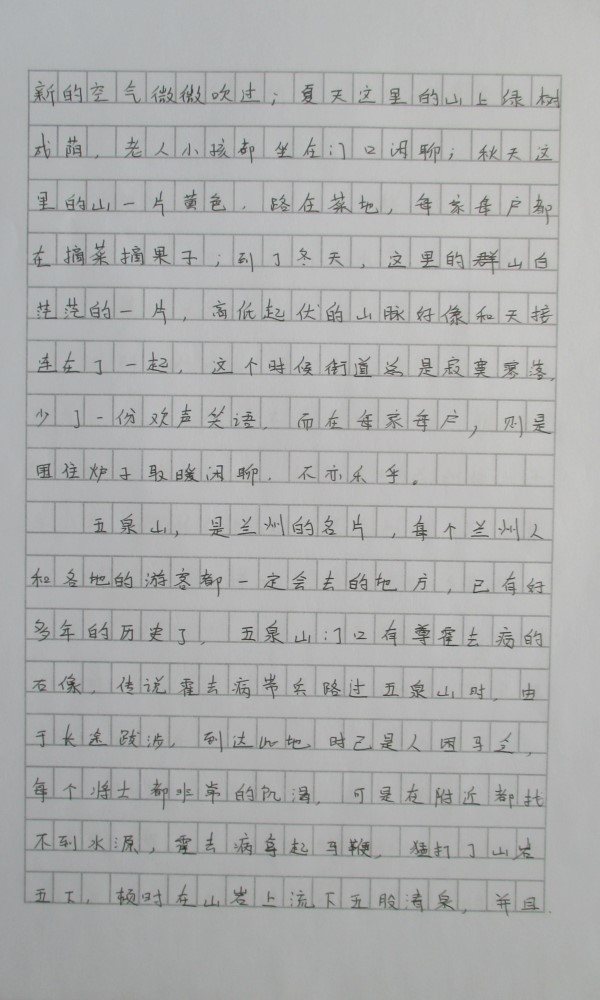 新的空气微微吹过；夏天这里的山上绿树
成荫，老人小孩都坐在门口闲聊；秋天这
里的山一片黄色，路在菜地，每家每户都
在摘菜摘果子；到了冬天，这里的群山白
茫茫的一片，高低起伏的山脉好像和天接
连在了一起，这个时候街道总是寂寞寥落，
少了一份欢声笑语，而在每家每户，则是
围住炉子取暖闲聊，不亦乐乎。
五泉山，是兰州的名片，每个兰州人
和各地的游客都一定会去的地方，已有好
多年的历史了，五泉山门口有尊霍去病的
石像，传说霍去病带兵路过五泉山时，由
于长途跋涉，到达此地时已是人困马乏，
每个将士都非常的饥渴，可是在附近都找
不到水源，霍去病拿起马鞭，猛打了山岩
五下，顿时在山岩上流下五股清泉，并且